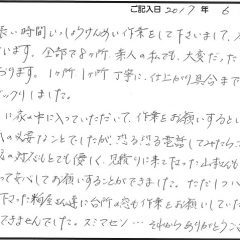 ご記入日 2017 年 6
長い時間いっしょうけんめい作業をして下さいまして、
います。全部で8ヶ所、素人の私でも、大変だった
おります。1ヶ所1ヶ所丁寧に、仕上がり具合まで
ビックリしました。
に家の中に入っていただいて、作業をお願いするとい
の必要なことでしたが、恐る恐る電話してみたら
の対応もとても優しく、見積りに来て下さった山
って安心してお願いすることができました。ただ1つ
下さった
に台所の窓も作業をお願いしていた
できませんでした。スミマセン… それからありがとう